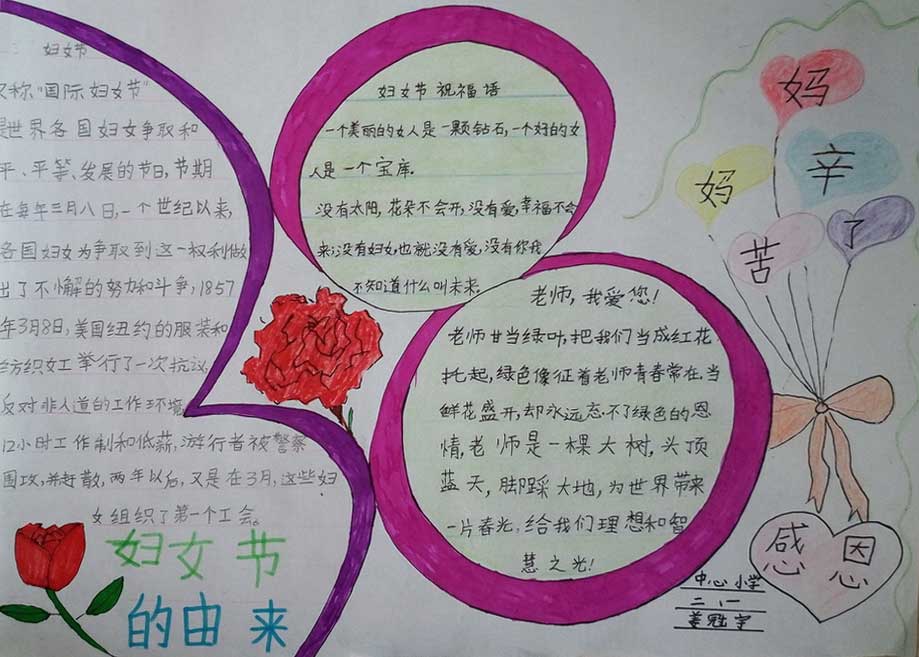 妇女节
又称“国际妇女节”
是世界各国妇女争取和
平、平等、发展的节日,节期
在每年三月八日,一个世纪以来,
各国妇女为争取到这一权利做
出了不懈的努力和斗争,1857
年3月8日,美国纽约的服装和
纺织女工举行了一次抗议,
反对非人道的工作环境
12小时工作制和低薪,游行者被警察
围攻,并赶散,两年以后,又是在3月,这些妇
女组织了第一个工会。
妇女节
的由来
妇女节祝福语
一个美丽的女人是一颗钻石,一个好的女
人是一个宝库.
没有太阳,花朵不会开,没有爱,幸福不会
来;没有妇女,也就没有爱,没有你我
不知道什么叫未来.
老师,我爱您!
老师甘当绿叶,把我们当成红花
托起,绿色像征着老师青春常在.当
鲜花盛开,却永远忘不了绿色的恩
情,老师是一棵大树,头顶
蓝天,脚踩大地,为世界带来
一片春光.给我们理想和智
慧之光!
妈
妈 辛
苦 了
感恩
中心小学
二、一
姜冠宇